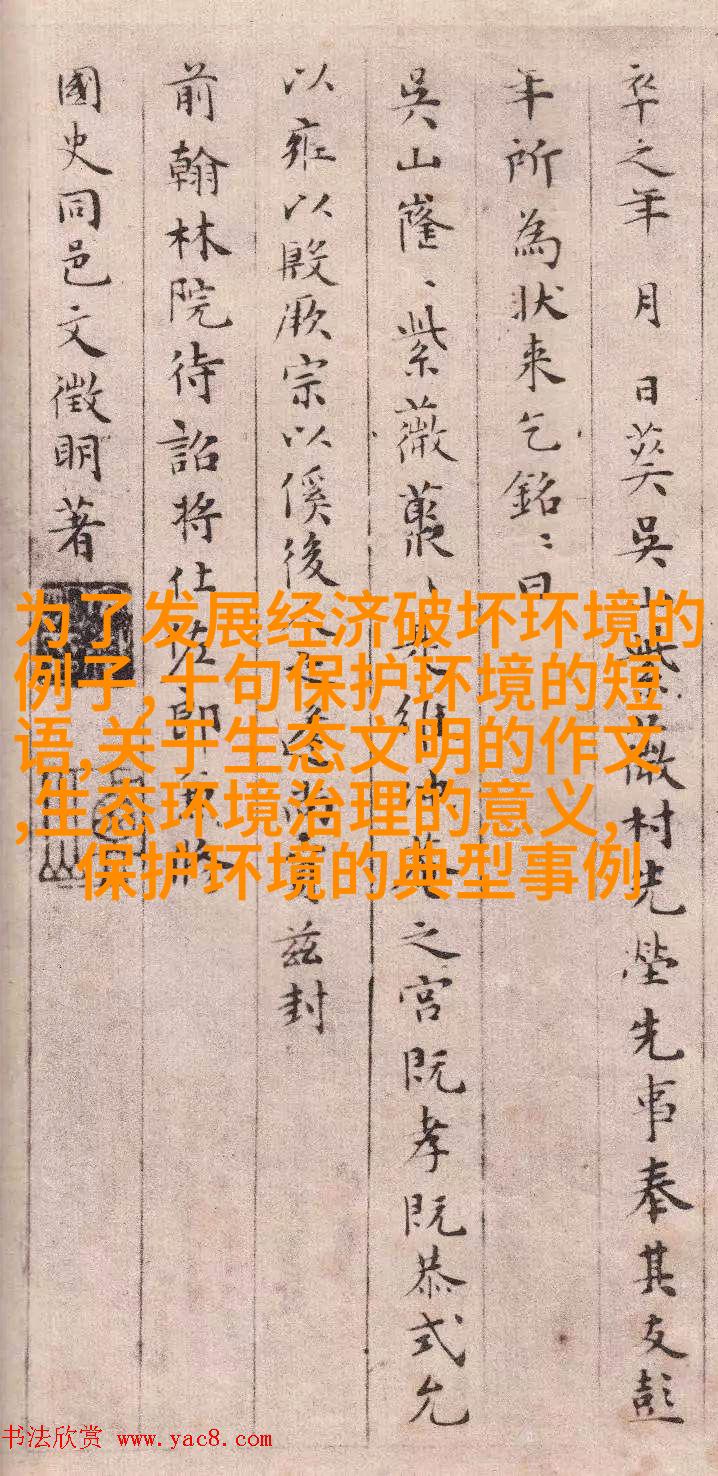 卒之年 月 日葬吳山紫薇村先塋先事奉其友彭
年所為狀來乞銘〻曰
吳山窿〻紫薇叢〻維之宮既孝既恭式允
以雍以殷厥宗以傒後之逢尚茲封
前翰林院待詔將仕佐郎兼脩
國史同邑文徵明著
为了发展经济破坏环境的
例子,十句保护环境的短
语,关于生态文明的作文
,生态环境治理的意义,
保护环境的典型事例
书法欣赏 www.yac8.com